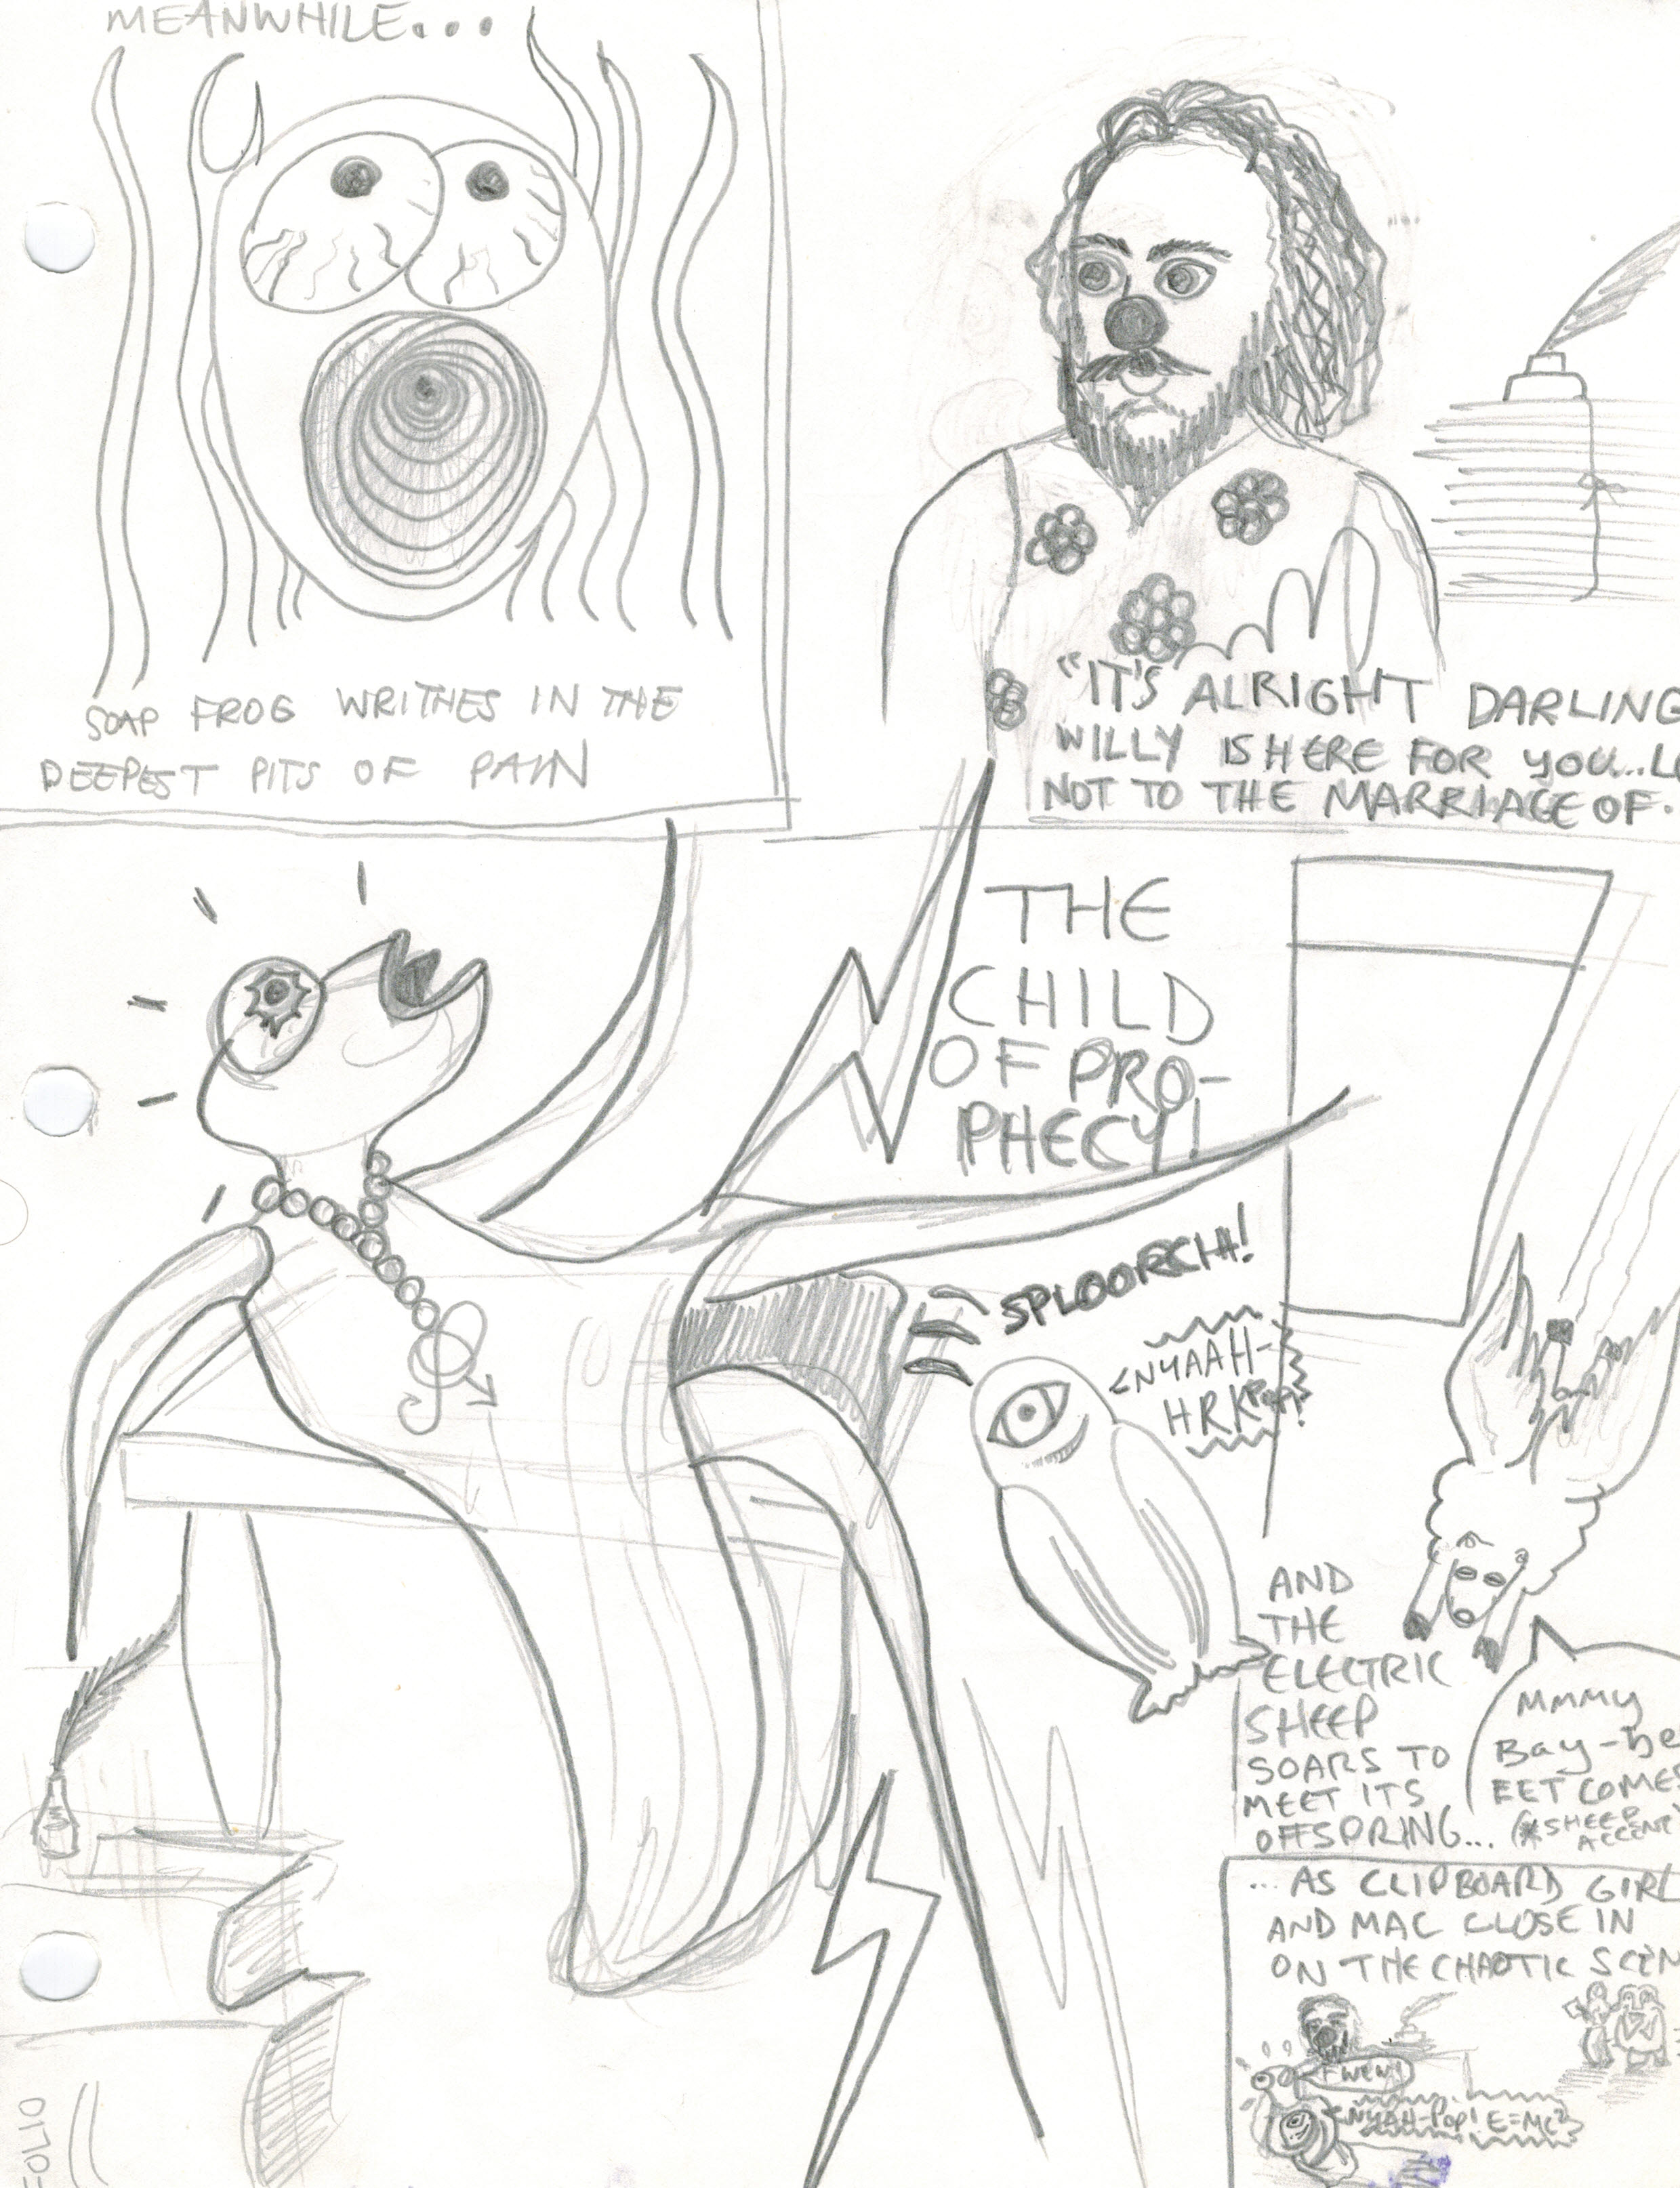 MEANWHILE...
SOAP FROG WRITHES IN THE
DEEPEST PITS OF PAIN
"IT'S ALRIGHT DARLING
WILLY IS HERE FOR YOU...
NOT TO THE MARRIAGE OF.
THE
CHILD
OF PRO-
PHECY!
SPLOORCH!
<NYAAH-
HRK
AND
THE
ELECTRIC
SHEEP
SOARS TO
MEET ITS
OFFSPRING...
MMMY
Bay-be
EET COMES
(*SHEEP
ACCENT)
...AS CLIPBOARD GIRL
AND MAC CLOSE IN
ON THE CHAOTIC SCEN
<NYAH-POP! E=MC²>
FOLIO